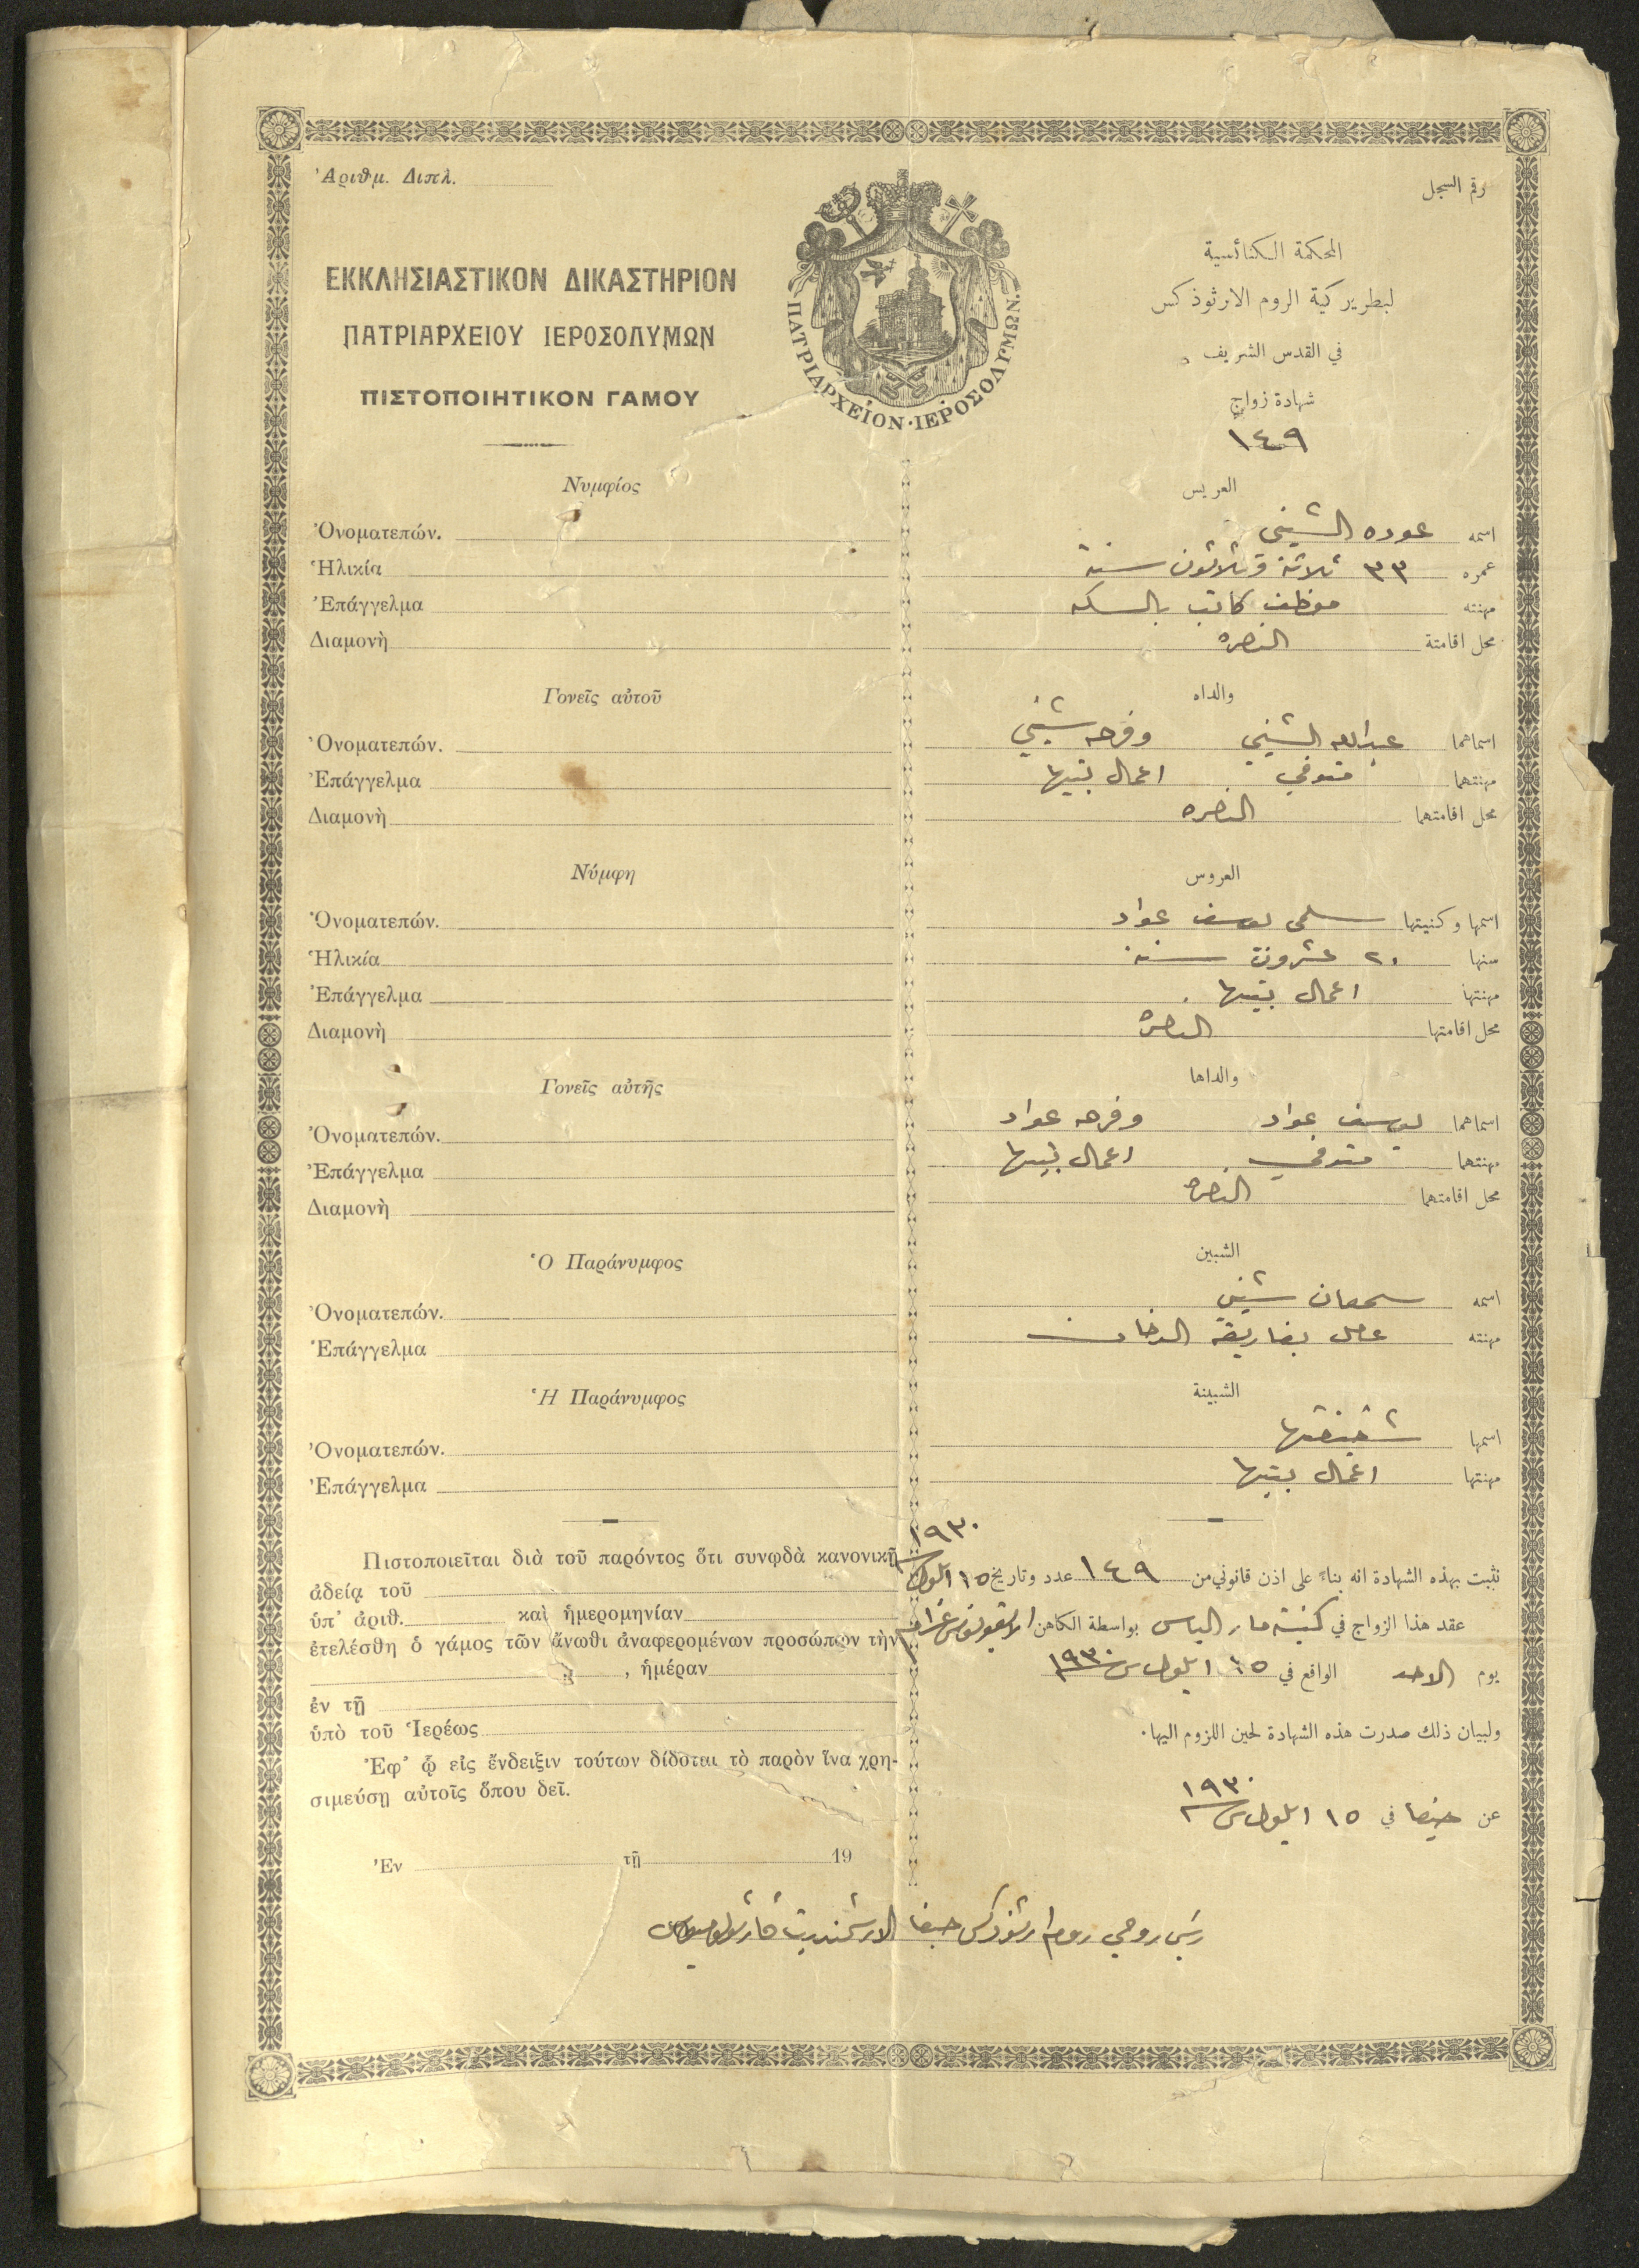 Ἀριθμ. Διπλ.
رقم السجل
ΕΚΚΛΗΣΙΑΣΤΙΚΟΝ ΔΙΚΑΣΤΗΡΙΟΝ
ΠΑΤΡΙΑΡΧΕΙΟΥ ΙΕΡΟΣΟΛΥΜΩΝ
ΠΙΣΤΟΠΟΙΗΤΙΚΟΝ ΓΑΜΟΥ
ΠΑΤΡΙΑΡΧΕΙΟΝ·ΙΕΡΟΣΟΛΥΜΩΝ.
المحكمة الكنائسية
لبطريركية الروم الارثوذكس
في القدس الشريف
شهادة زواج
١٤٩
Νυμφίος
Ὀνοματεπών.
Ἡλικία
Ἐπάγγελμα
Διαμονὴ
Γονεῖς αὐτοῦ
Ὀνοματεπών.
Ἐπάγγελμα
Διαμονὴ
Νύμφη
Ὀνοματεπών.
Ἡλικία
Ἐπάγγελμα
Διαμονὴ
Γονεῖς αὐτῆς
Ὀνοματεπών.
Ἐπάγγελμα
Διαμονὴ
Ὁ Παράνυμφος
Ὀνοματεπών.
Ἐπάγγελμα
Ἡ Παράνυμφος
Ὀνοματεπών.
Ἐπάγγελμα
Πιστοποιεῖται διὰ τοῦ παρόντος ὅτι συνῳδὰ κανονικῇ
ἀδείᾳ τοῦ
ὑπ' ἀριθ. καὶ ἡμερομηνίαν
ἐτελέσθη ὁ γάμος τῶν ἄνωθι ἀναφερομένων προσώπων τὴν
, ἡμέραν
ἐν τῇ
ὑπὸ τοῦ Ἱερέως
Ἐφ' ᾧ εἰς ἔνδειξιν τούτων δίδοται τὸ παρὸν ἵνα χρη-
σιμεύσῃ αὐτοῖς ὅπου δεῖ.
Ἐν τῇ 19
العريس
اسمه عوده الشيني
عمره ٣٣ ثلاثة وثلاثون سنة
مهنته موظف كاتب بالسكه
محل اقامتة الناصره
والداه
اسماهما عبدالله الشيني وفرحه شيني
مهنتهما متوفي اعمال بيتها
محل اقامتهما الناصره
العروس
اسمها وكنيتها سلمى يوسف عواد
سنها ٢٠ عشرون سنة
مهنتها اعمال بيتها
محل اقامتها الناصرة
والداها
اسماهما يوسف عواد وفرحه عواد
مهنتهما متوفي اعمال بيتها
محل اقامتهما الناصرة
الشبين
اسمه سمعان شيني
مهنته عامل بفاريقة الدخان
الشبينة
اسمها شقيقتها
مهنتها اعمال بيتها
نثبت بهذه الشهادة انه بناءً على اذن قانوني من ١٤٩ عدد وتاريخ ١٥ ايلول ١٩٣٠
عقد هذا الزواج في كنيسة مار الياس بواسطة الكاهن
يوم الاحد الواقع في ١٥ ايلول س ١٩٣٠
ولبيان ذلك صدرت هذه الشهادة لحين اللزوم اليها.
عن حيفا في ١٥ ايلول س ١٩٣٠
رئيس روحي روم ارثوذكس حيفا الارشمندريت